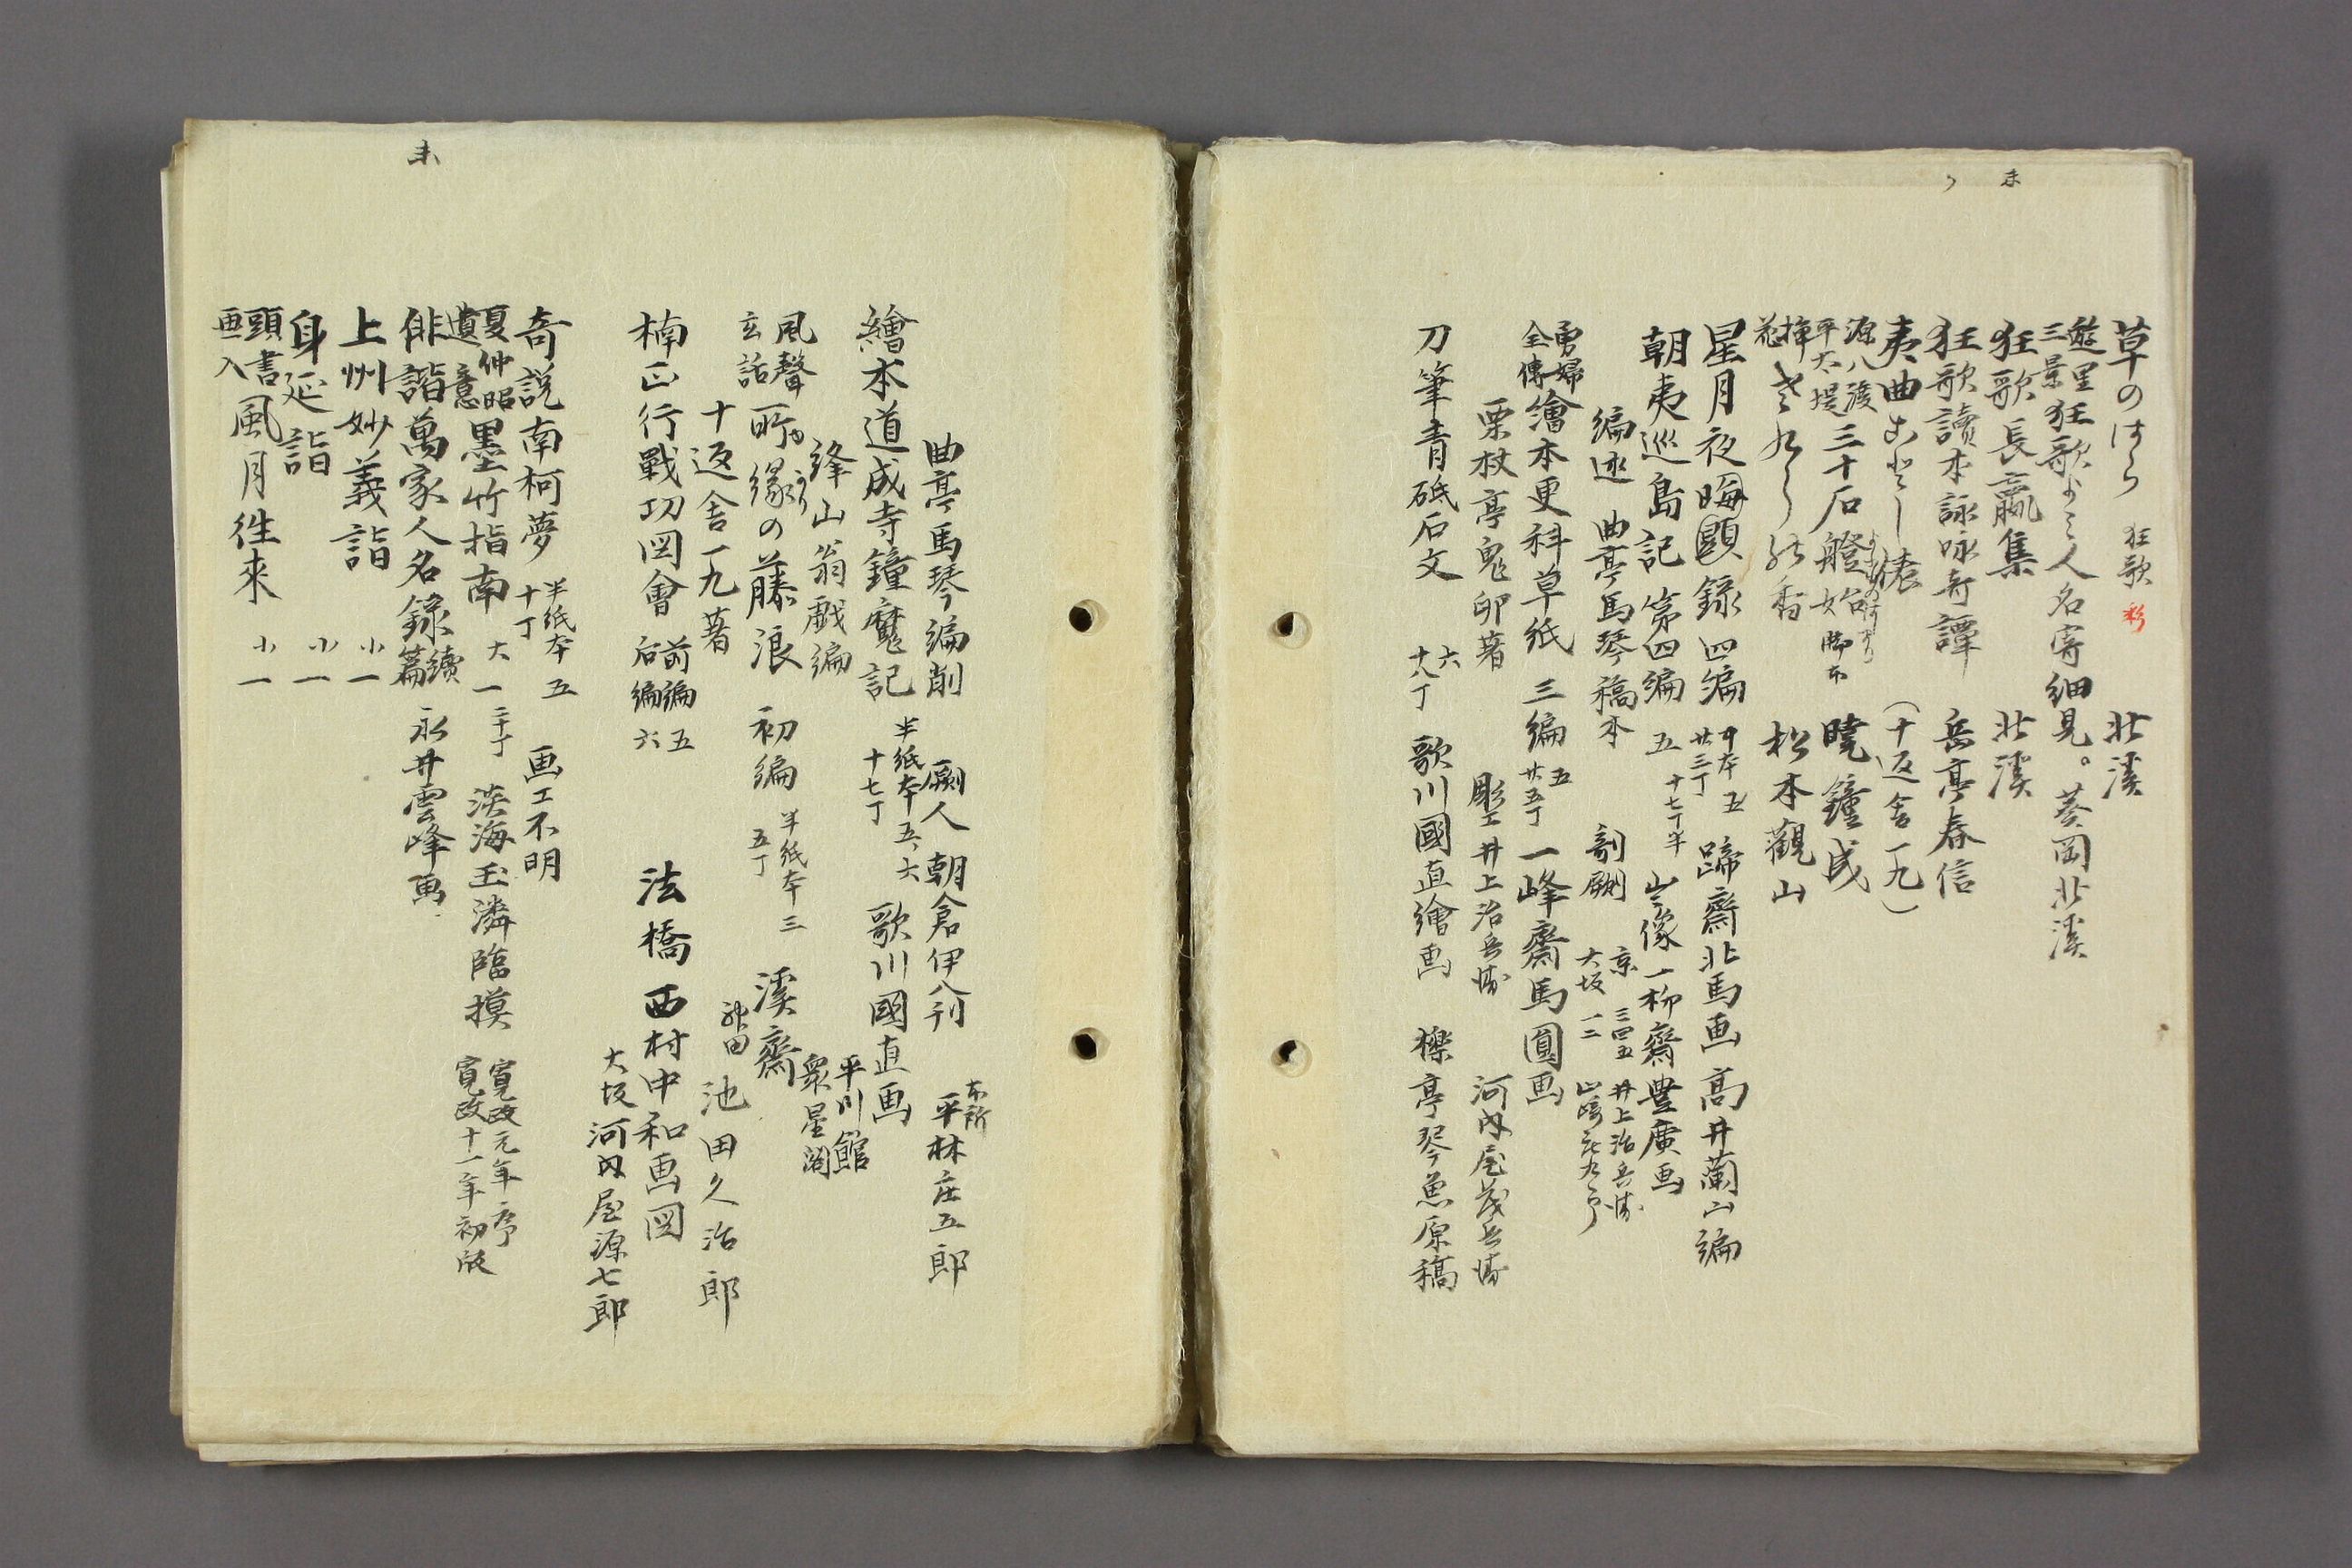 未
草のはら 狂歌 彩 北溪
遊里三景 狂歌よミ人名寄細見。葵岡北溪
狂歌長嬴集 北溪
狂歌讀本詠咏奇譚 岳亭春信
夷曲 (十返舎一九)
源八渡 平太堤 三十石艠始 脚本 曉鐘成
挿花 松本觀山
星月夜晦顕録 四編 中本五 廿三丁 蹄齋北馬画 高井蘭山編
朝夷巡島記 第四編 五 十七丁半 肖像 一柳齋豊廣画
編述 曲亭馬琴稿本 剞劂 京 三四五 井上治兵衛 大坂 一二 山崎庄九郎
勇婦全傳 繪本更科草紙 三編 五 廿五丁 一峰齋馬圓画
栗杖亭鬼卵著 彫工 井上治兵衛 河内屋茂兵衛
刀筆青砥石文 六 十八丁 歌川國直繪画 櫟亭琴魚原稿
未
曲亭馬琴編削 劂人 朝倉伊八刊 本所 平林庄五郎
繪本道成寺鐘魔記 半紙本 五、六 十七丁 歌川國直画
絳山翁戯編 平川館 衆星閣
風聲玄話 所縁の藤浪 初編 半紙本 三 五丁 溪齋
十返舎一九著 神田 池田久治郎
楠正行戰功図會 前編 五 后編 六 法橋 西村中和画図
大坂 河内屋源七郎
奇説南柯夢 半紙本 五 十丁 画工不明
夏仲昭遺意 墨竹指南 大一 二十丁 淡海玉潾臨摸 寛政元年序 寛政十一年初版
俳諧萬家人名録 續篇 永井雲峰画
上州妙義詣 小一
身延詣 小一
頭書画入 風月徃來 小一